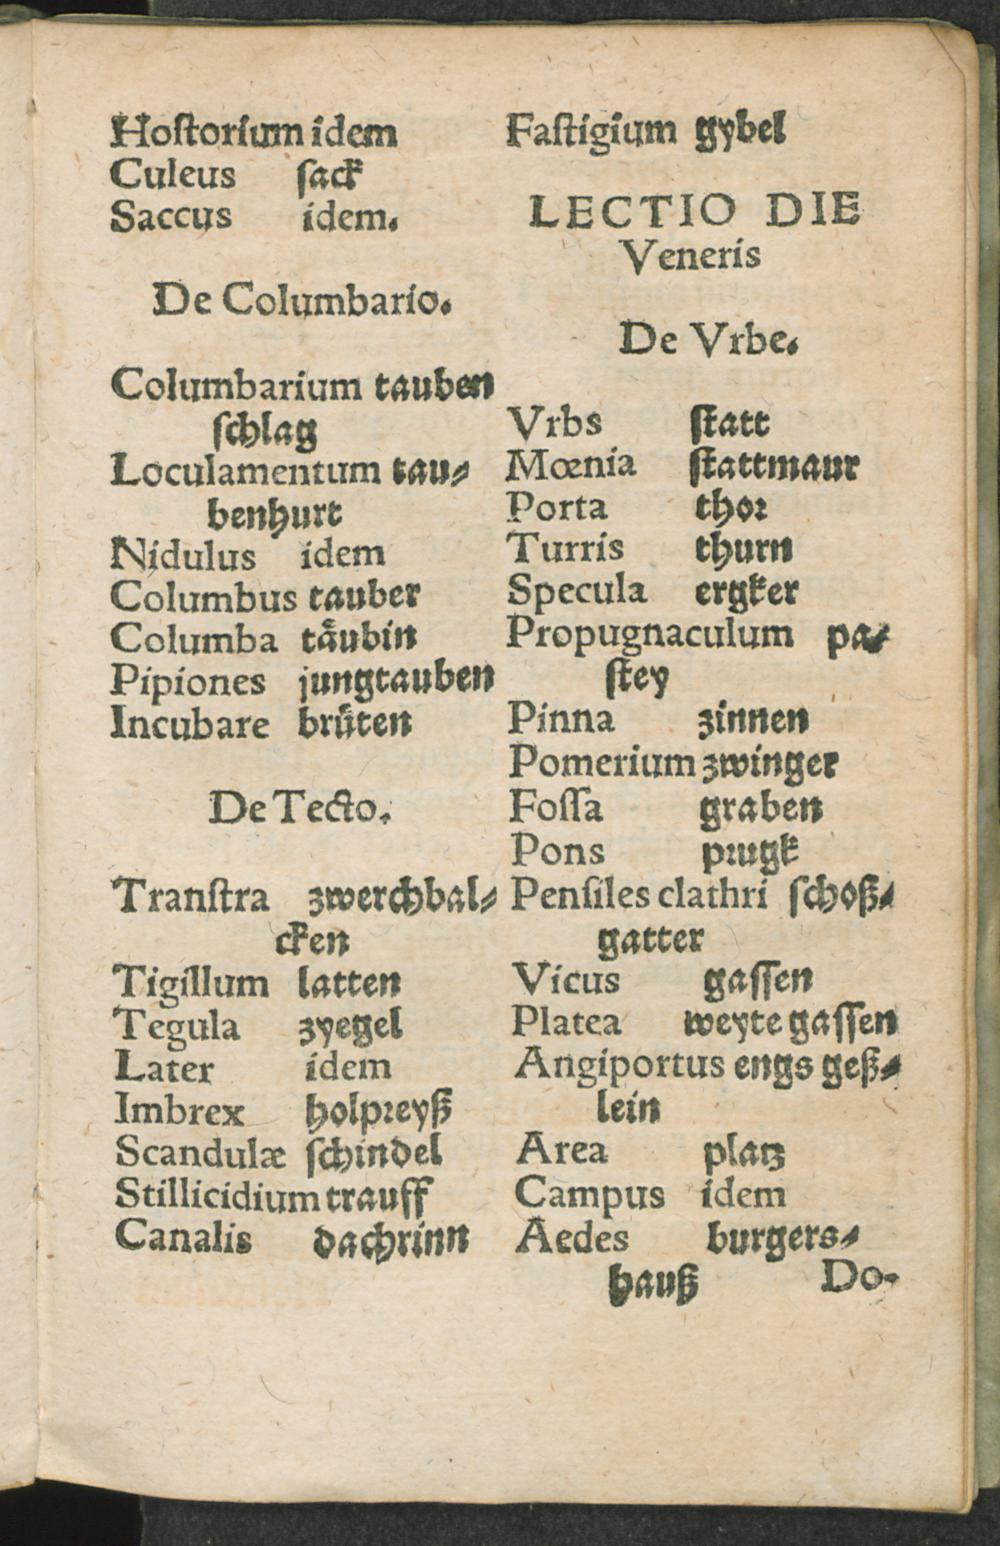 Hoſtorium idem
Culeus ſack
Saccus idem.
De Columbario.
Columbarium tauben
ſchlag
Loculamentum tau⸗
benhurt
Nidulus idem
Columbus tauber
Columba taͤubin
Pipiones jungtauben
Incubare bruͤten
De Tecto.
Tranſtra zwerchbal⸗
cken
Tigillum latten
Tegula zyegel
Later idem
Imbrex holpꝛeyß
Scandulæ ſchindel
Stillicidium trauff
Canalis dachrinn
Faſtigium gybel
LECTIO DIE
Veneris
De Vrbe.
Vrbs ſtatt
Mœnia ſtattmaur
Porta thoꝛ
Turris thurn
Specula ergker
Propugnaculum pa⸗
ſtey
Pinna zinnen
Pomerium zwinger
Foſſa graben
Pons pꝛugk
Penſiles clathri ſchoß⸗
gatter
Vicus gaſſen
Platea weyte gaſſen
Angiportus engs geß⸗
lein
Area platz
Campus idem
Aedes burgers⸗
hauß
Do-